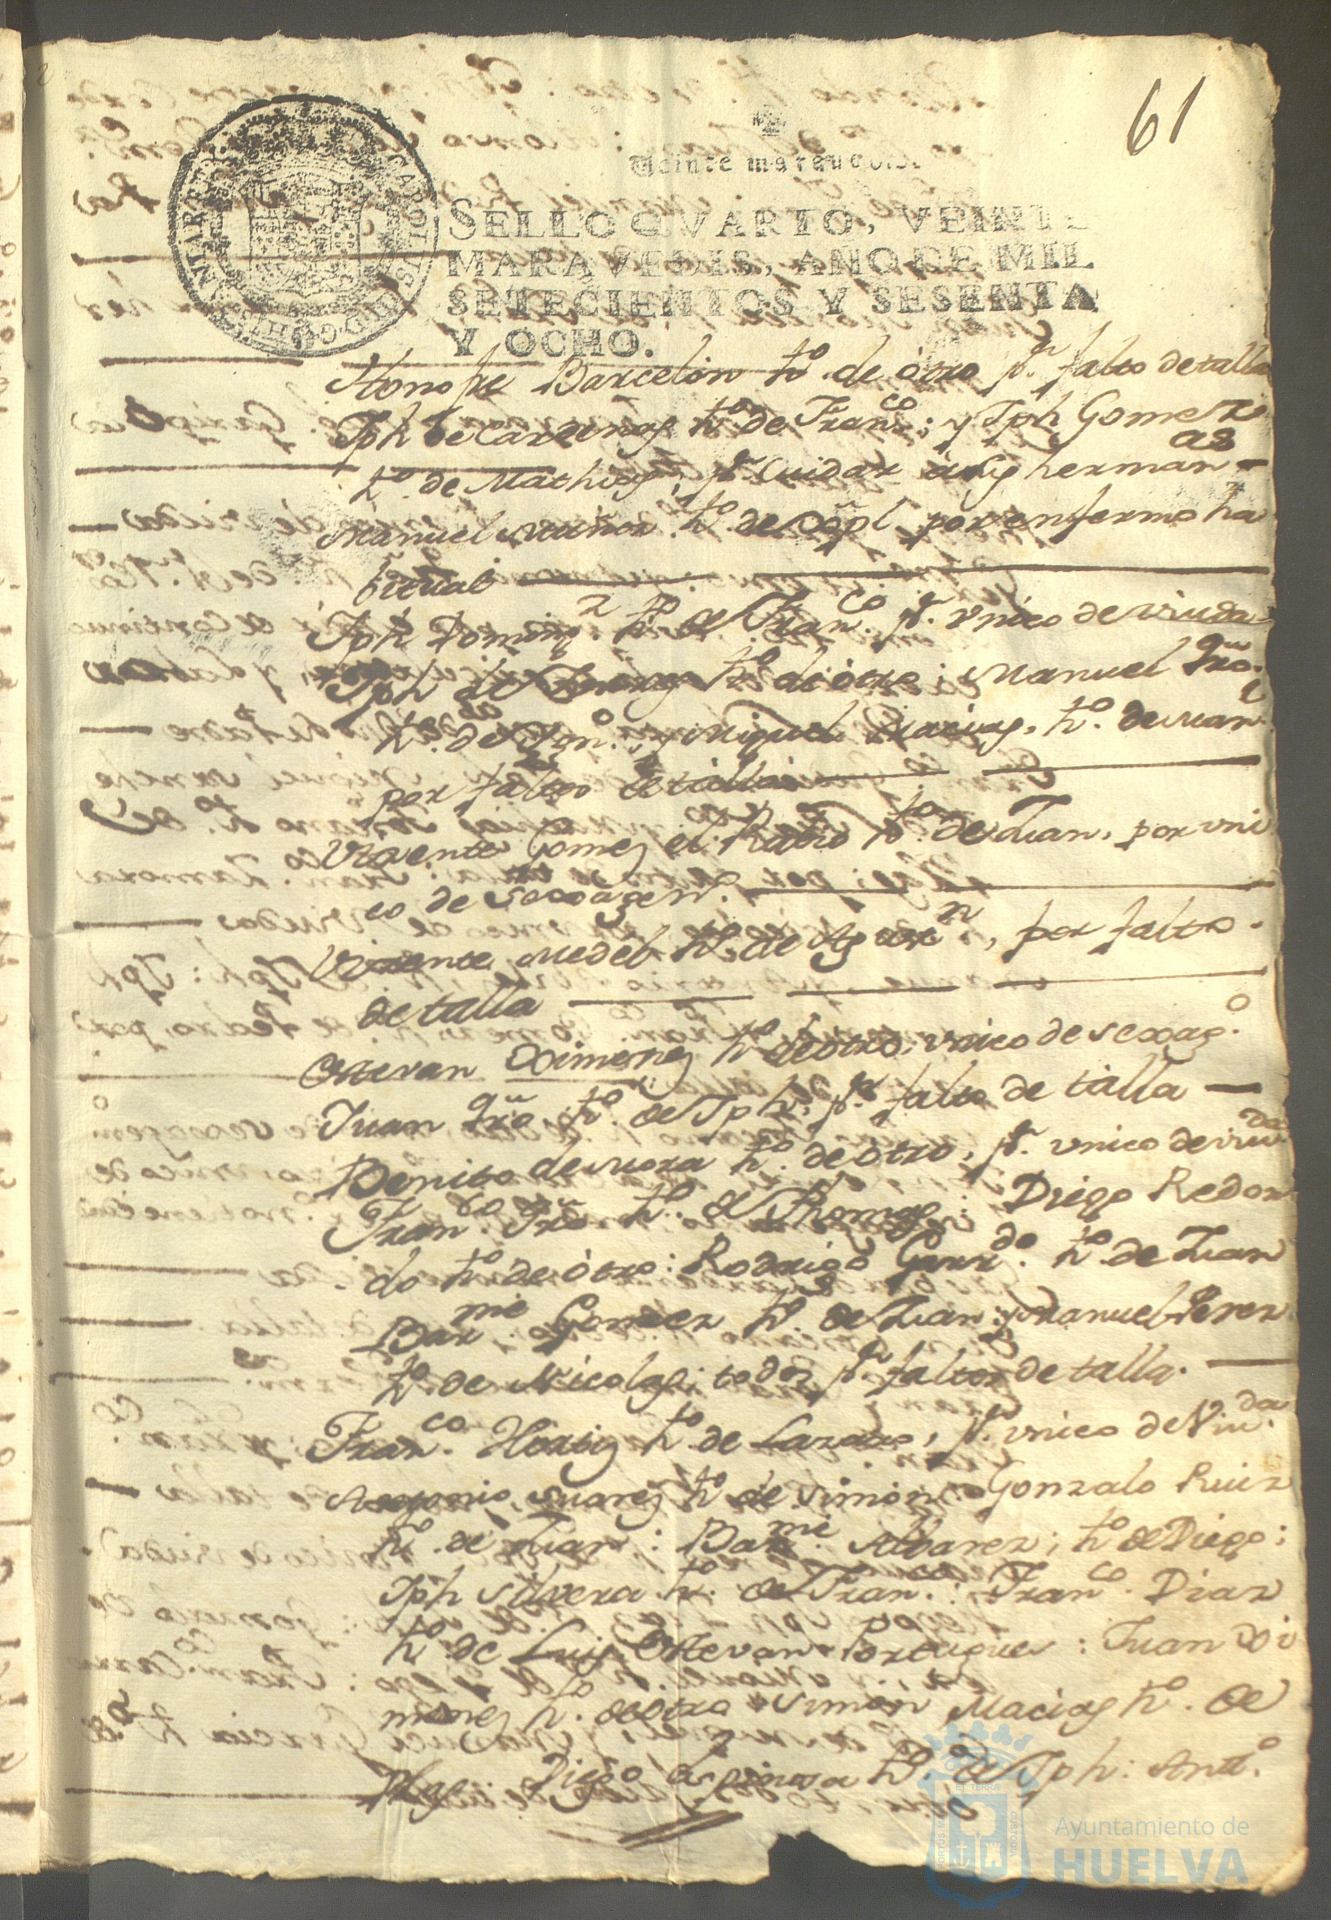 61
Veinte maravedis.
SELLO QVARTO, VEINTE
MARAVEDIS, AÑO DE MIL
SETECIENTOS Y SESENTA
Y OCHO.
Honofre Barcelon hº. de otro pr. falto de talla
Jph de Cardenas hº de Franco; y Jph Gomez
hº. de Mathias, pr. cuidar à sus hermanas
Manuel Muñoz hº. de por enfermo ha
bitual
Jph Domingz hº de Franco. pr. vnico de viuda
Jph de hº de otro; Manuel
hº. de y Miguel Macias, hº. de Man
por faltos de talla
Vizente Gomez el Rubio hº de Juan, por vni
co de sexagenº.
Vizente Medel hº. de Agustn, por falto
de talla
Estevan Ximenez hº de otro, vnico de sexagº.
Juan hº. de Jph, pr. falto de talla
Benito de Mora hº. de otro, pr. vnico de viuda
Franco hº. de Thomas: Diego Redon
do hº de otro: Rodrigo Garrdo. hº. de Juan
Barme Gomez hº. de Juan: y Manuel Perez
hº. de Nicolas; todos pr. faltos de talla.
Franco. hº. de Lazaro, pr. vnico de Viuda.
Antonio Suarez hº. de Simon: Gonzalo Ruiz
hº. de Juan: Barme. Albarez; hº. de Diego:
Jph Silvera hº. de Franco: Franco. Diaz
hº. de Luis: Estevan Portugues: Juan Xi
menez hº. de otro: Simon Macias hº. de
Blas: Diego Espinosa hº. de Jph: Antº.
Ayuntamiento de
HUELVA